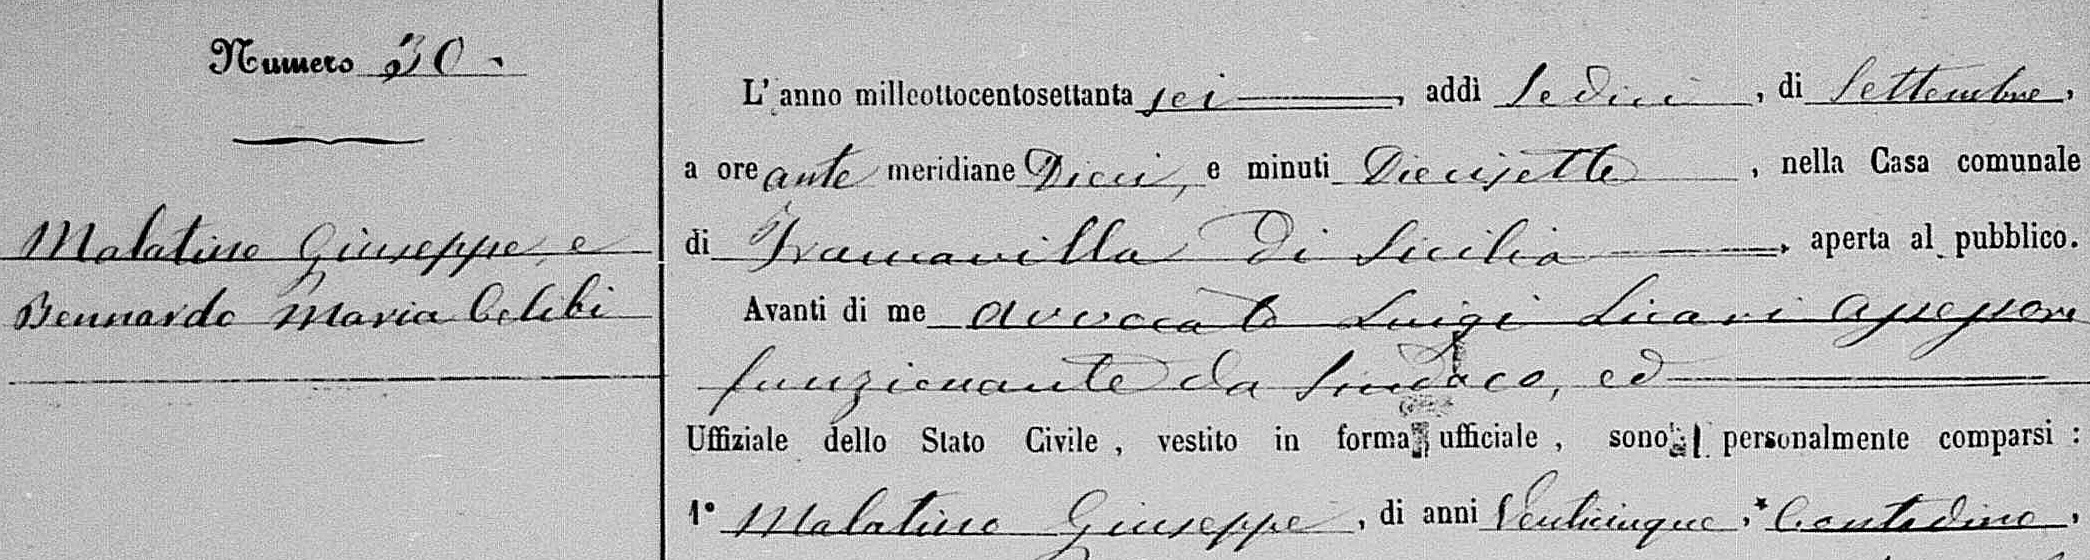 Numero 30.
Malatino Giuseppe, e
Bennardo Maria Celebi
L'anno milleottocentosettanta sei, addì Sedici, di Settembre,
a ore ante meridiane Dieci, e minuti Diecisette, nella Casa comunale
di Francavilla Di Sicilia, aperta al pubblico.
Avanti di me avvocato Luigi Licari Assessore
funzionante da Sindaco, ed
Uffiziale dello Stato Civile, vestito in forma ufficiale, sono personalmente comparsi:
1° Malatino Giuseppe, di anni Venticinque, * Contadino,